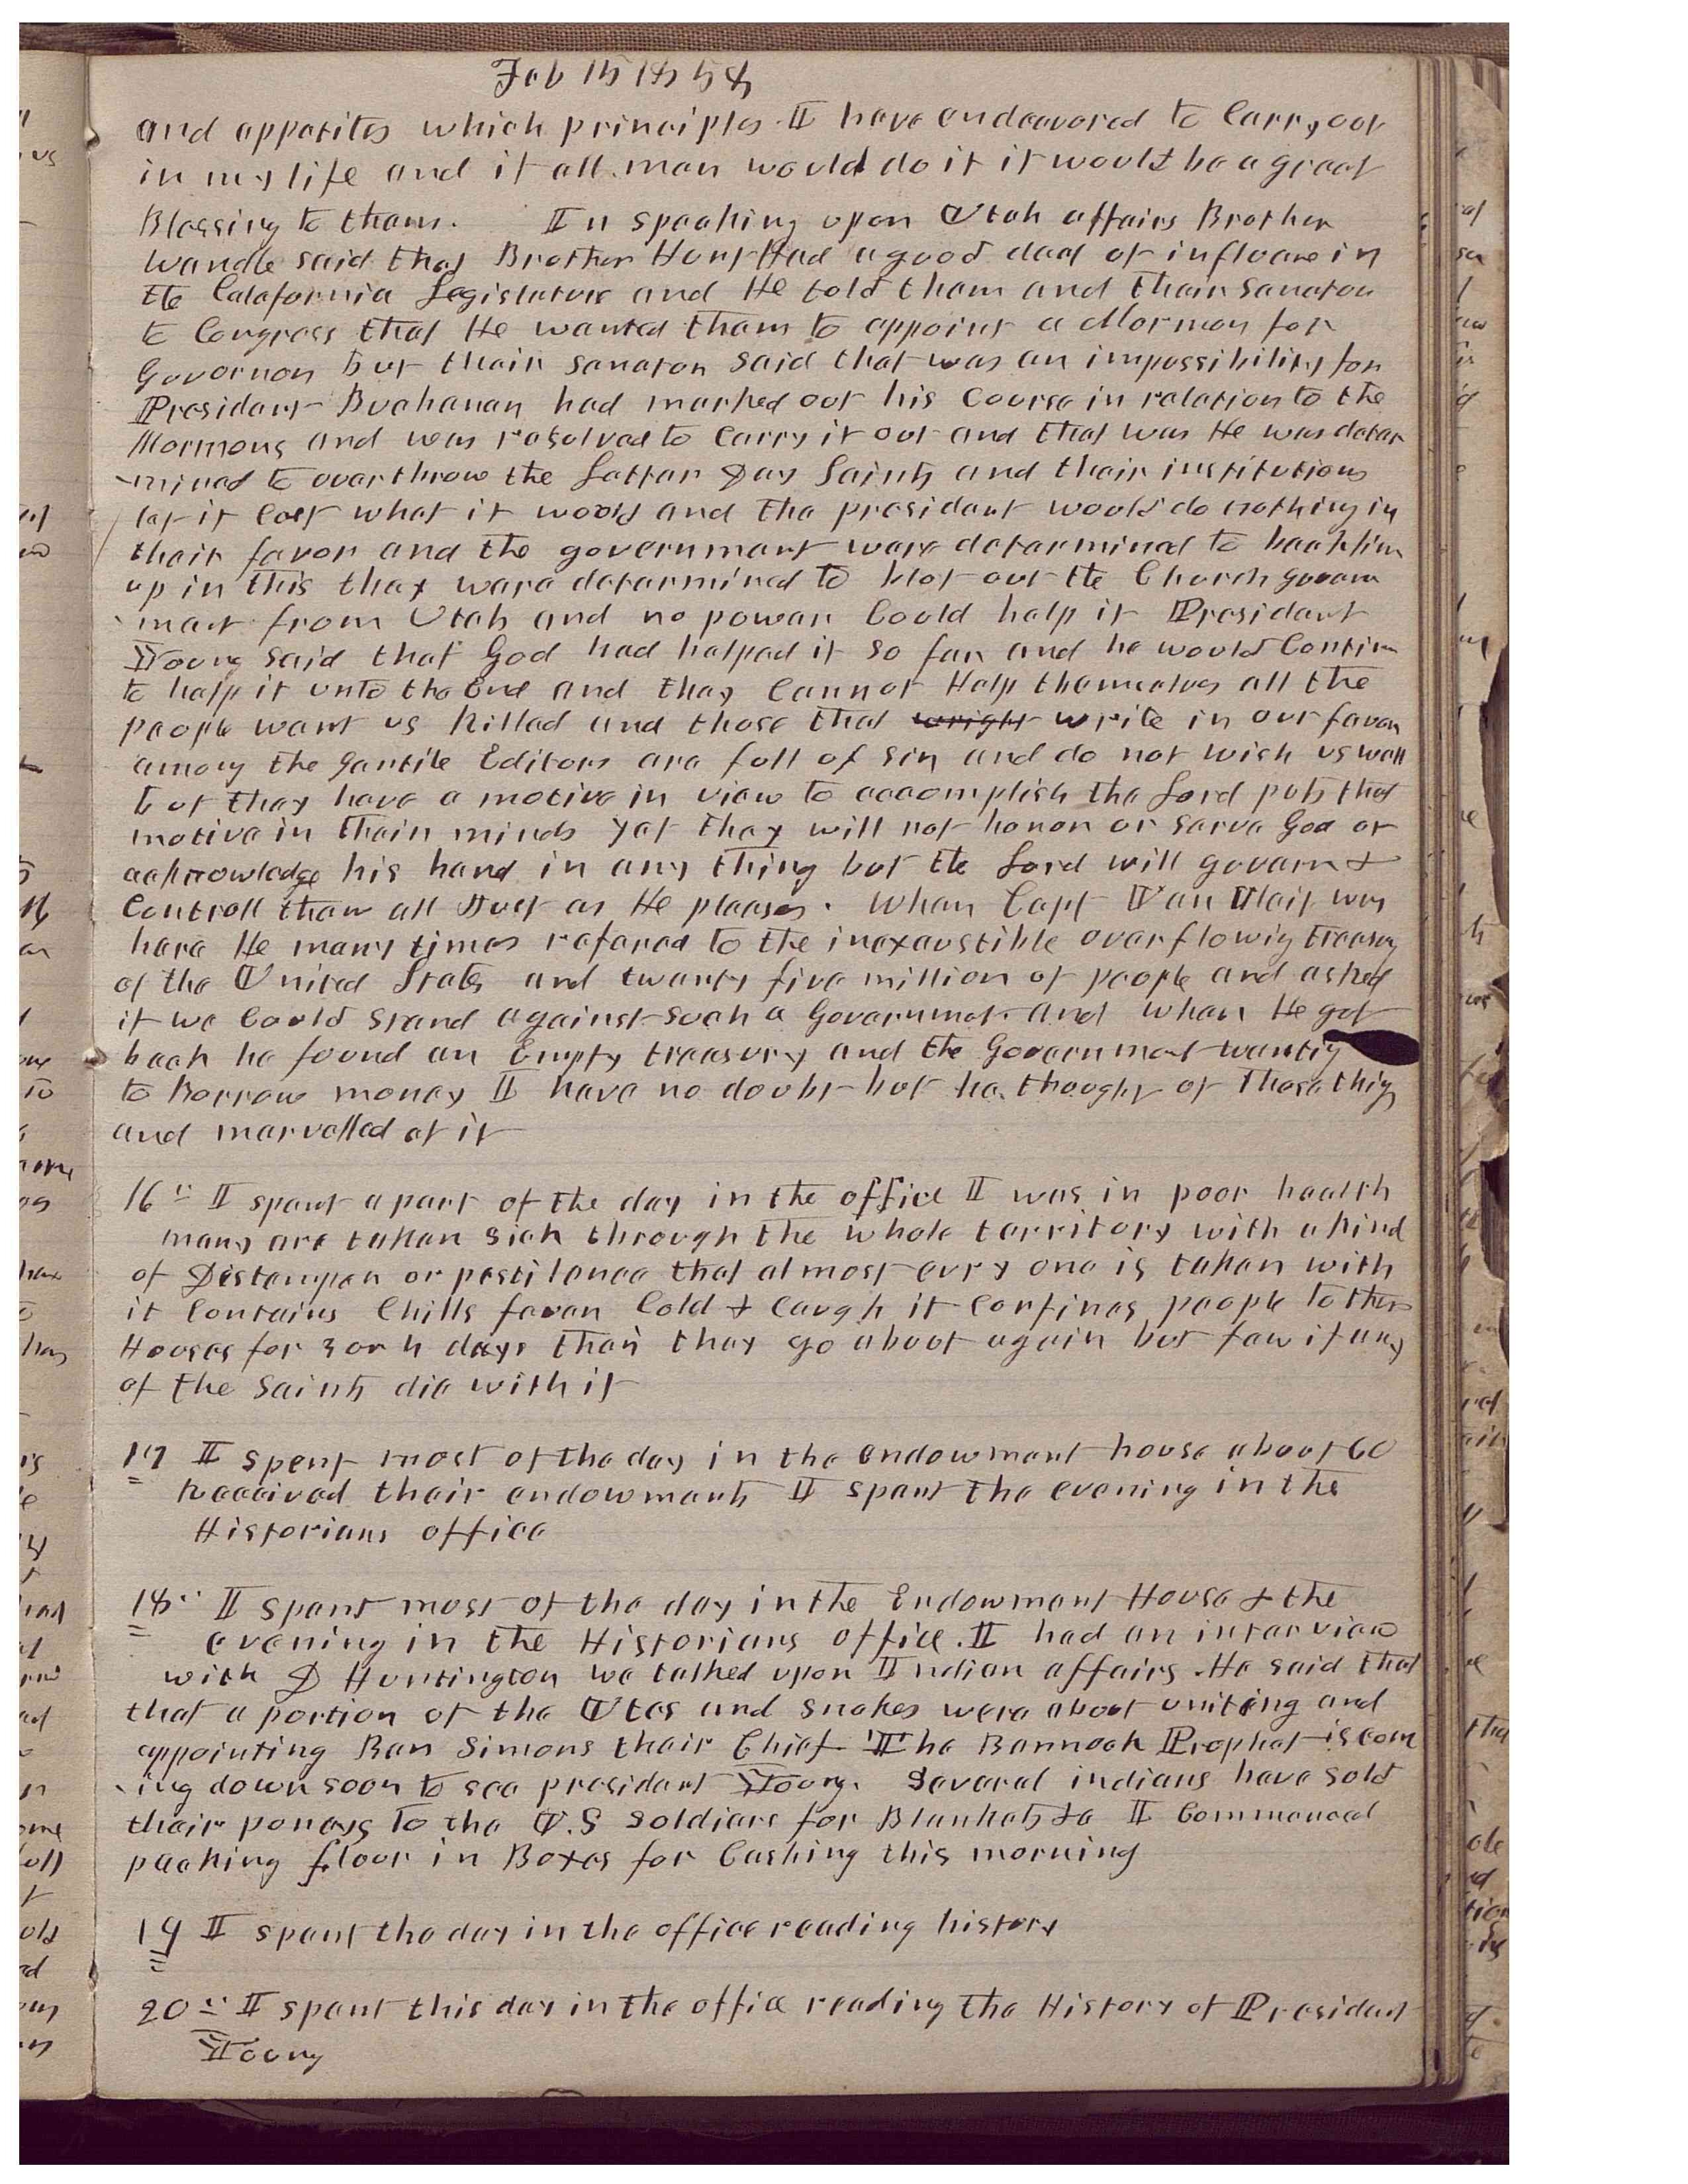 Feb 15 1858
and appetites which principles I have endeavored to Carry out
in my life and if all men would do it it would be a great
Blessing to them. In speaking upon Utah affairs Brother
Wandle said that Brother Hunt Had a good deal of influence in
the Calafornia Legislature and He told them and their Senator
to Congress that He wanted them to appoint a Mormon for
Governor but their Senator said that was an impossibility for
President Buchanan had marked out his Course in relation to the
Mormons and was resolved to Carry it out and that was He was deter
-mined to overthrow the Latter Day Saints and their institutions
let it cost what it would and the president would do nothing in
their favor and the government ware determined to back him
up in this they ware determined to blot out the Church govern
-ment from Utah and no power Could help it President
Young said that God had helped it so far and he would Contin
to help it unto the End and they Cannot Help themselves all the
people want us killed and those that wright write in our favor
among the gentile Editors are full of sin and do not wish us well
but they have a motive in view to accomplish the Lord puts that
motive in their minds yet they will not honor or serve God or
acknowledge his hand in any thing but the Lord will govern &
Controll them all Just as He pleases. When Capt Van Vleit was
here He many times refered to the inexaustible overflowig treasury
of the United States and twenty five million of people and asked
if we Could stand against such a Governmet. and when He got
back he found an Empty treasury and the Goverment wantig
to Borrow money I have no doubt but he thought of these thigs
and marvelled at it
16" I spent a part of the day in the office I was in poor health
many are taken sick through the whole territory with a kind
of Distemper or pestilence that almost evry one is taken with
it Contains Chills fever Cold & Caugh it confines people to ther
Houses for 3 or 4 days then they go about again but few if any
of the Saints die with it
17 I spent most of the day in the endowment house about 60
Received their endowments I spent the evening in the
Historians office
18" I spent most of the day in the Endowment House & the
evening in the Historians office. I had an interview
with D Huntington we talked upon Indian affairs. He said that
that a portion of the Utes and Snakes were about uniting and
appointing Ben Simons their Chief The Bannock Prophet is com
-ing down soon to see president Young. Several indians have sold
their poneys to the U.S soldiers for Blankets &c I Commenced
packing flour in Boxes for Cashing this morning
19 I spent the day in the office reading history
20" I spent this day in the office reading the History of President
Young